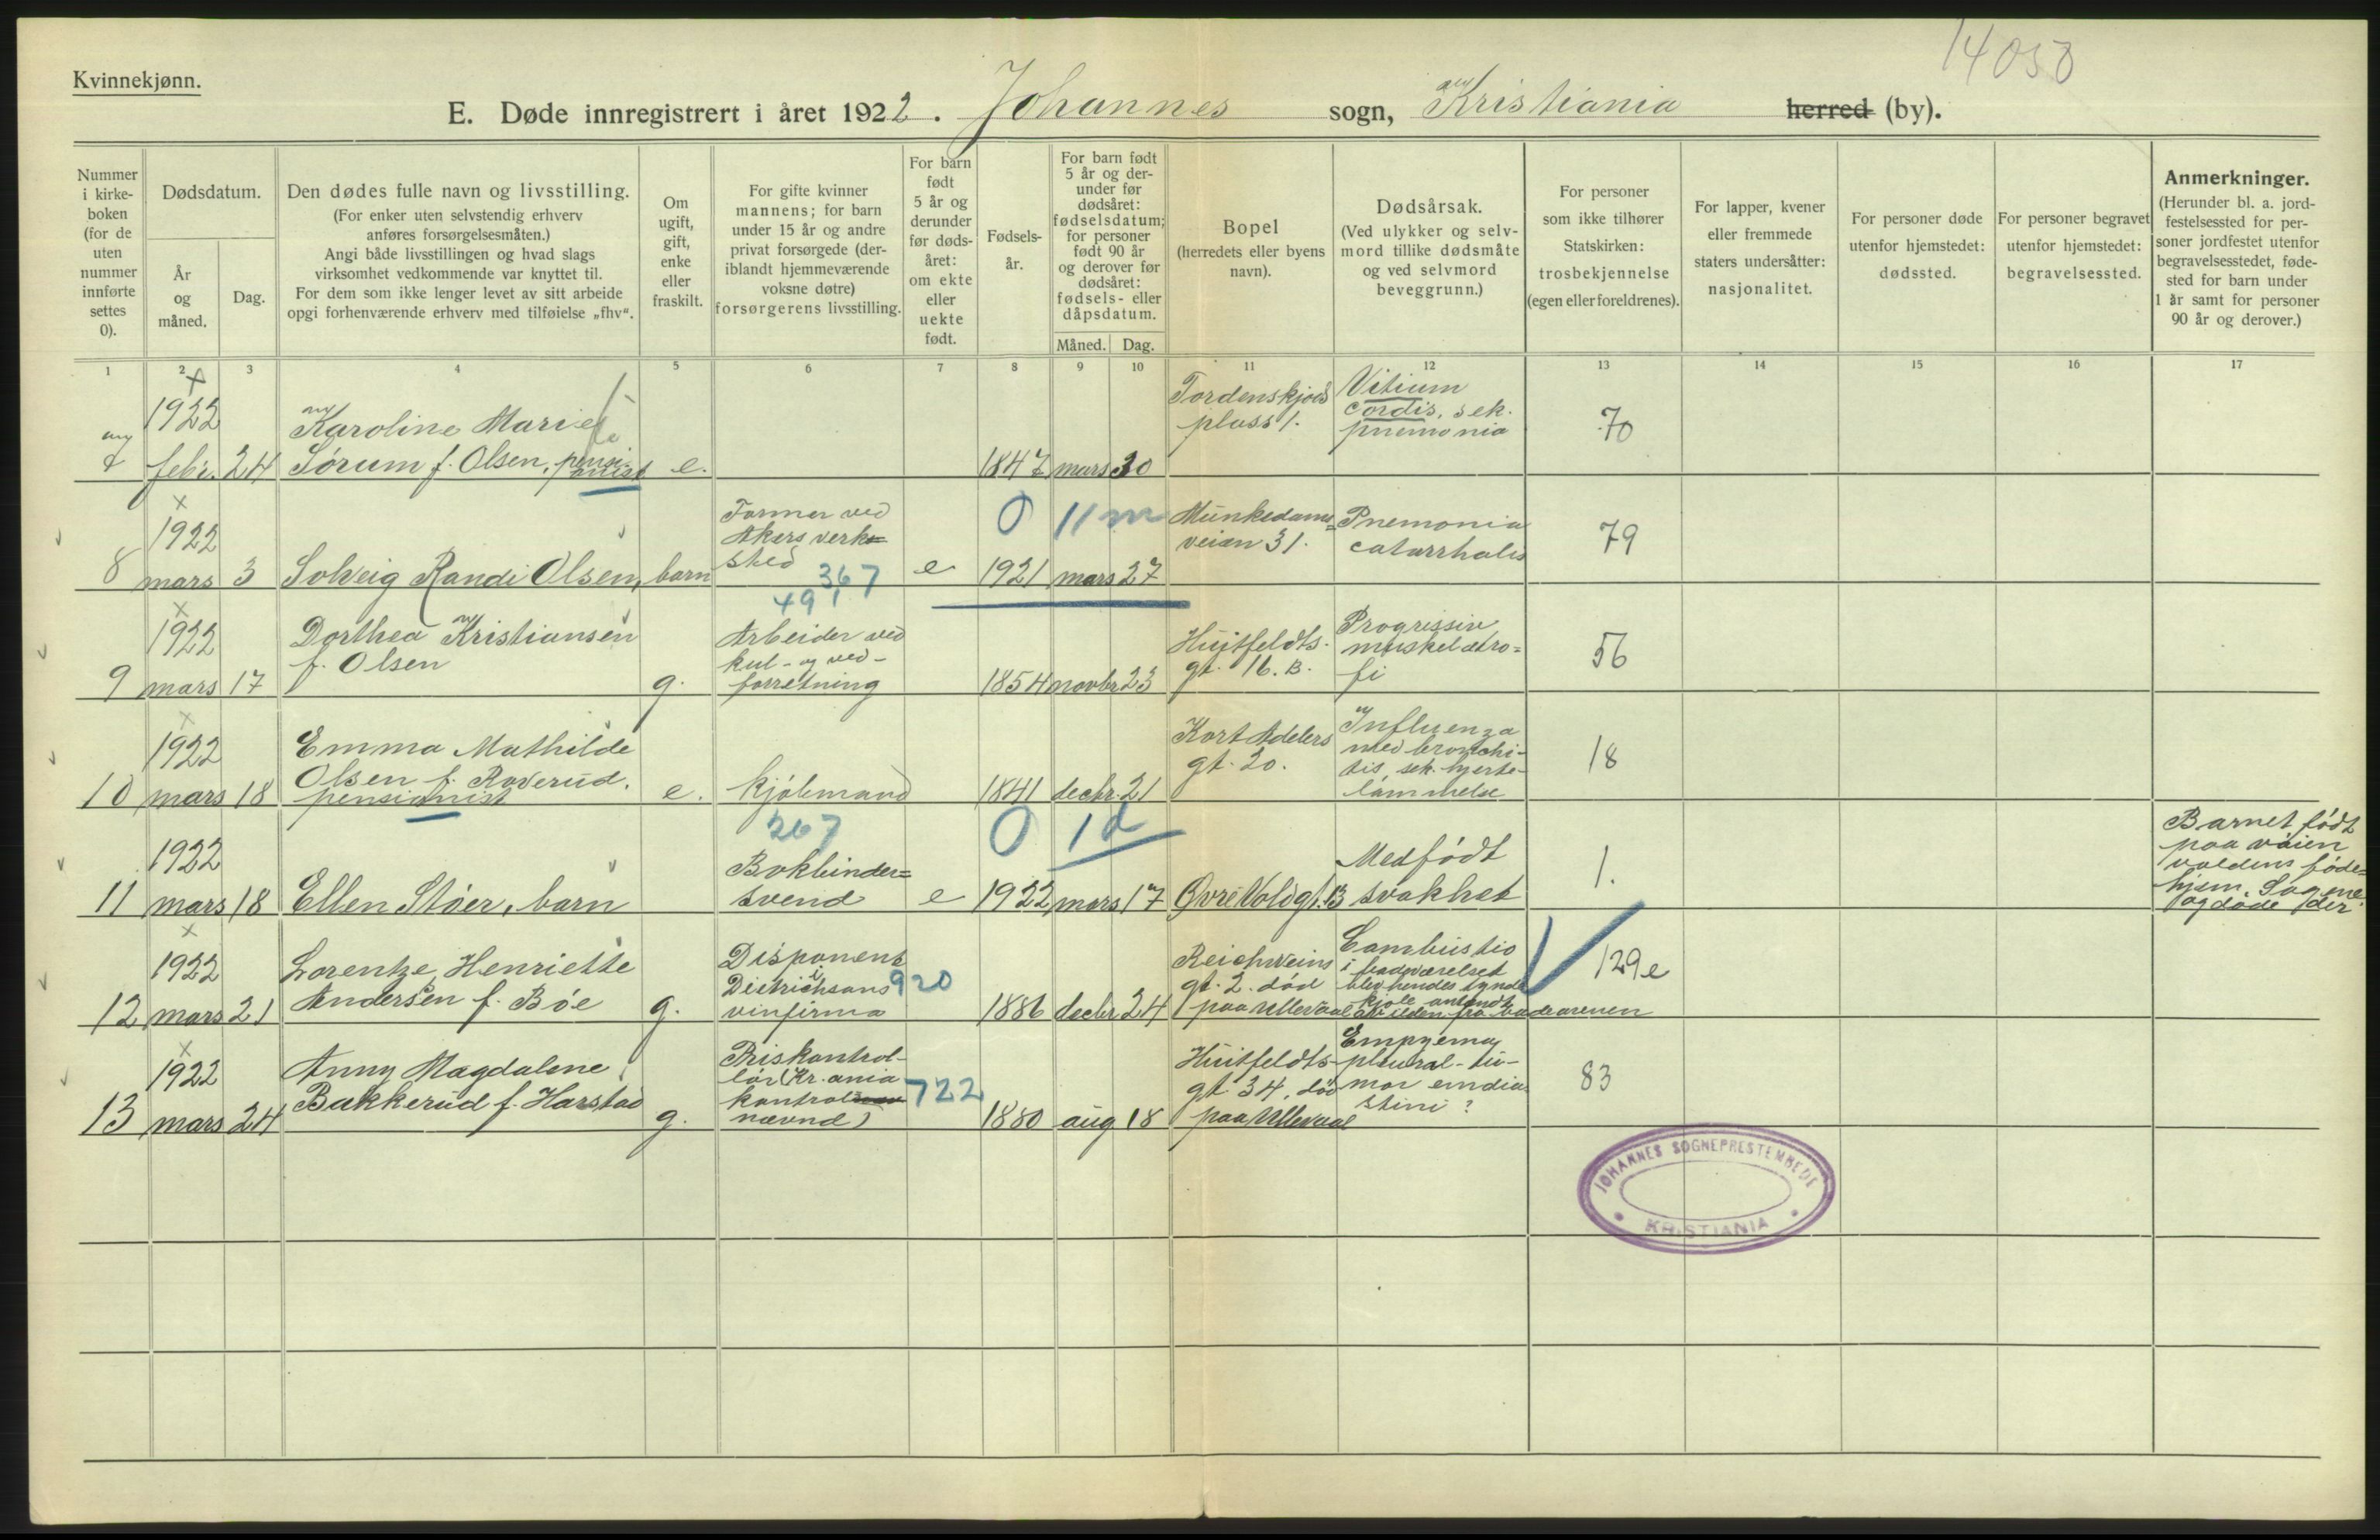 14050
Kvinnekjønn.
E. Døde innregistrert i året 1922. Johannes sogn, Kristiania herred (by).
Nummer i kirke- boken (for de uten nummer innførte settes 0).
Dødsdatum.
År og måned.
Dag.
Den dødes fulle navn og livsstilling.
(For enker uten selvstendig erhverv
anføres forsørgelsesmåten.)
Angi både livsstillingen og hvad slags
virksomhet vedkommende var knyttet til.
For dem som ikke lenger levet av sitt arbeide
opgi forhenværende erhverv med tilføielse „fhv“.
Om
ugift,
gift,
enke
eller
fraskilt.
For gifte kvinner
mannens; for barn
under 15 år og andre
privat forsørgede (der-
iblandt hjemmeværende
voksne døtre)
forsørgerens livsstilling.
For barn
født
5 år og
derunder
før døds-
året:
om ekte
eller
uekte
født.
Fødsels-
år.
For barn født
5 år og der-
under før
dødsåret:
fødselsdatum;
for personer
født 90 år
og derover før
dødsåret:
fødsels- eller
dåpsdatum.
Måned. Dag.
Bopel
(herredets eller byens
navn).
Dødsårsak.
(Ved ulykker og selv-
mord tillike dødsmåte
og ved selvmord
beveggrunn.)
For personer
som ikke tilhører
Statskirken:
trosbekjennelse
(egen eller foreldrenes).
For lapper, kvener
eller fremmede
staters undersåtter:
nasjonalitet.
For personer døde
utenfor hjemstedet:
dødssted.
For personer begravet
utenfor hjemstedet:
begravelsessted.
Anmerkninger.
(Herunder bl. a. jord-
festelsessted for per-
soner jordfestet utenfor
begravelsesstedet, føde-
sted for barn under
1 år samt for personer
90 år og derover.)
1 2 3 4 5 6 7 8 9 10 11 12 13 14 15 16 17
1922
febr. 24
Karoline Marie
Sørum f. Olsen, pensi-
onist
e.
1847 mars 30
Tordenskjolds
plass 1.
Vitium
cordis, sek.
pnemonia
70
8
1922
mars 3
Solveig Randi Olsen, barn
Former ved
Akers verk=
sted
367
491
e
0 11 m
1921 mars 27
Munkedams=
veien 31.
Pnemonia
catarrhalis
79
9
1922
mars 17
Dorthea Kristiansen
f. Olsen
g.
Arbeider ved
kul- og ved-
forretning
1854 novbr 23
Huitfeldts-
gt. 16. B.
Progressiv
muskelatro=
fi
56
10
1922
mars 18
Emma Mathilde
Olsen f. Raverud.
pensionist
e.
Kjøbmand
1841 decbr. 21
Kort Adelers
gt. 20.
Influenza
med bronchi-
tis, sek. hjerte-
lammelse
18
11
1922
mars 18
Ellen Støer, barn
267
Bokbinder=
svend
e
0 1 d
1922 mars 17
Øvre Voldgt. 13
Medfødt
svakhet
1.
Barnet født
paa veien
føde=
hjem. Sagene
og døde der.
12
1922
mars 21
Lorentze Henriette
Andersen f. Bøe
g.
Disponent
i
vinfirma
920
1886 decbr 24
Reichweins
gt. 2. død
paa Ullevaal
Combustio
i badeværelset
blev hendes tynde
kjole antændt
av ilden fra badeovnen
129e
13
1922
mars 24
Anny Magdalene
Bakkerud f. Harstad
g.
Priskontrol-
lør (Kr.ania
kontrol
nævnd)
722
1880 aug 18
Huitfeldts-
gt. 34, død
paa Ullevaal
Empyema
pleural-tu-
mor emdia
stini?
83
JOHANNES SOGNEPRESTEMBEDE
KRISTIANIA